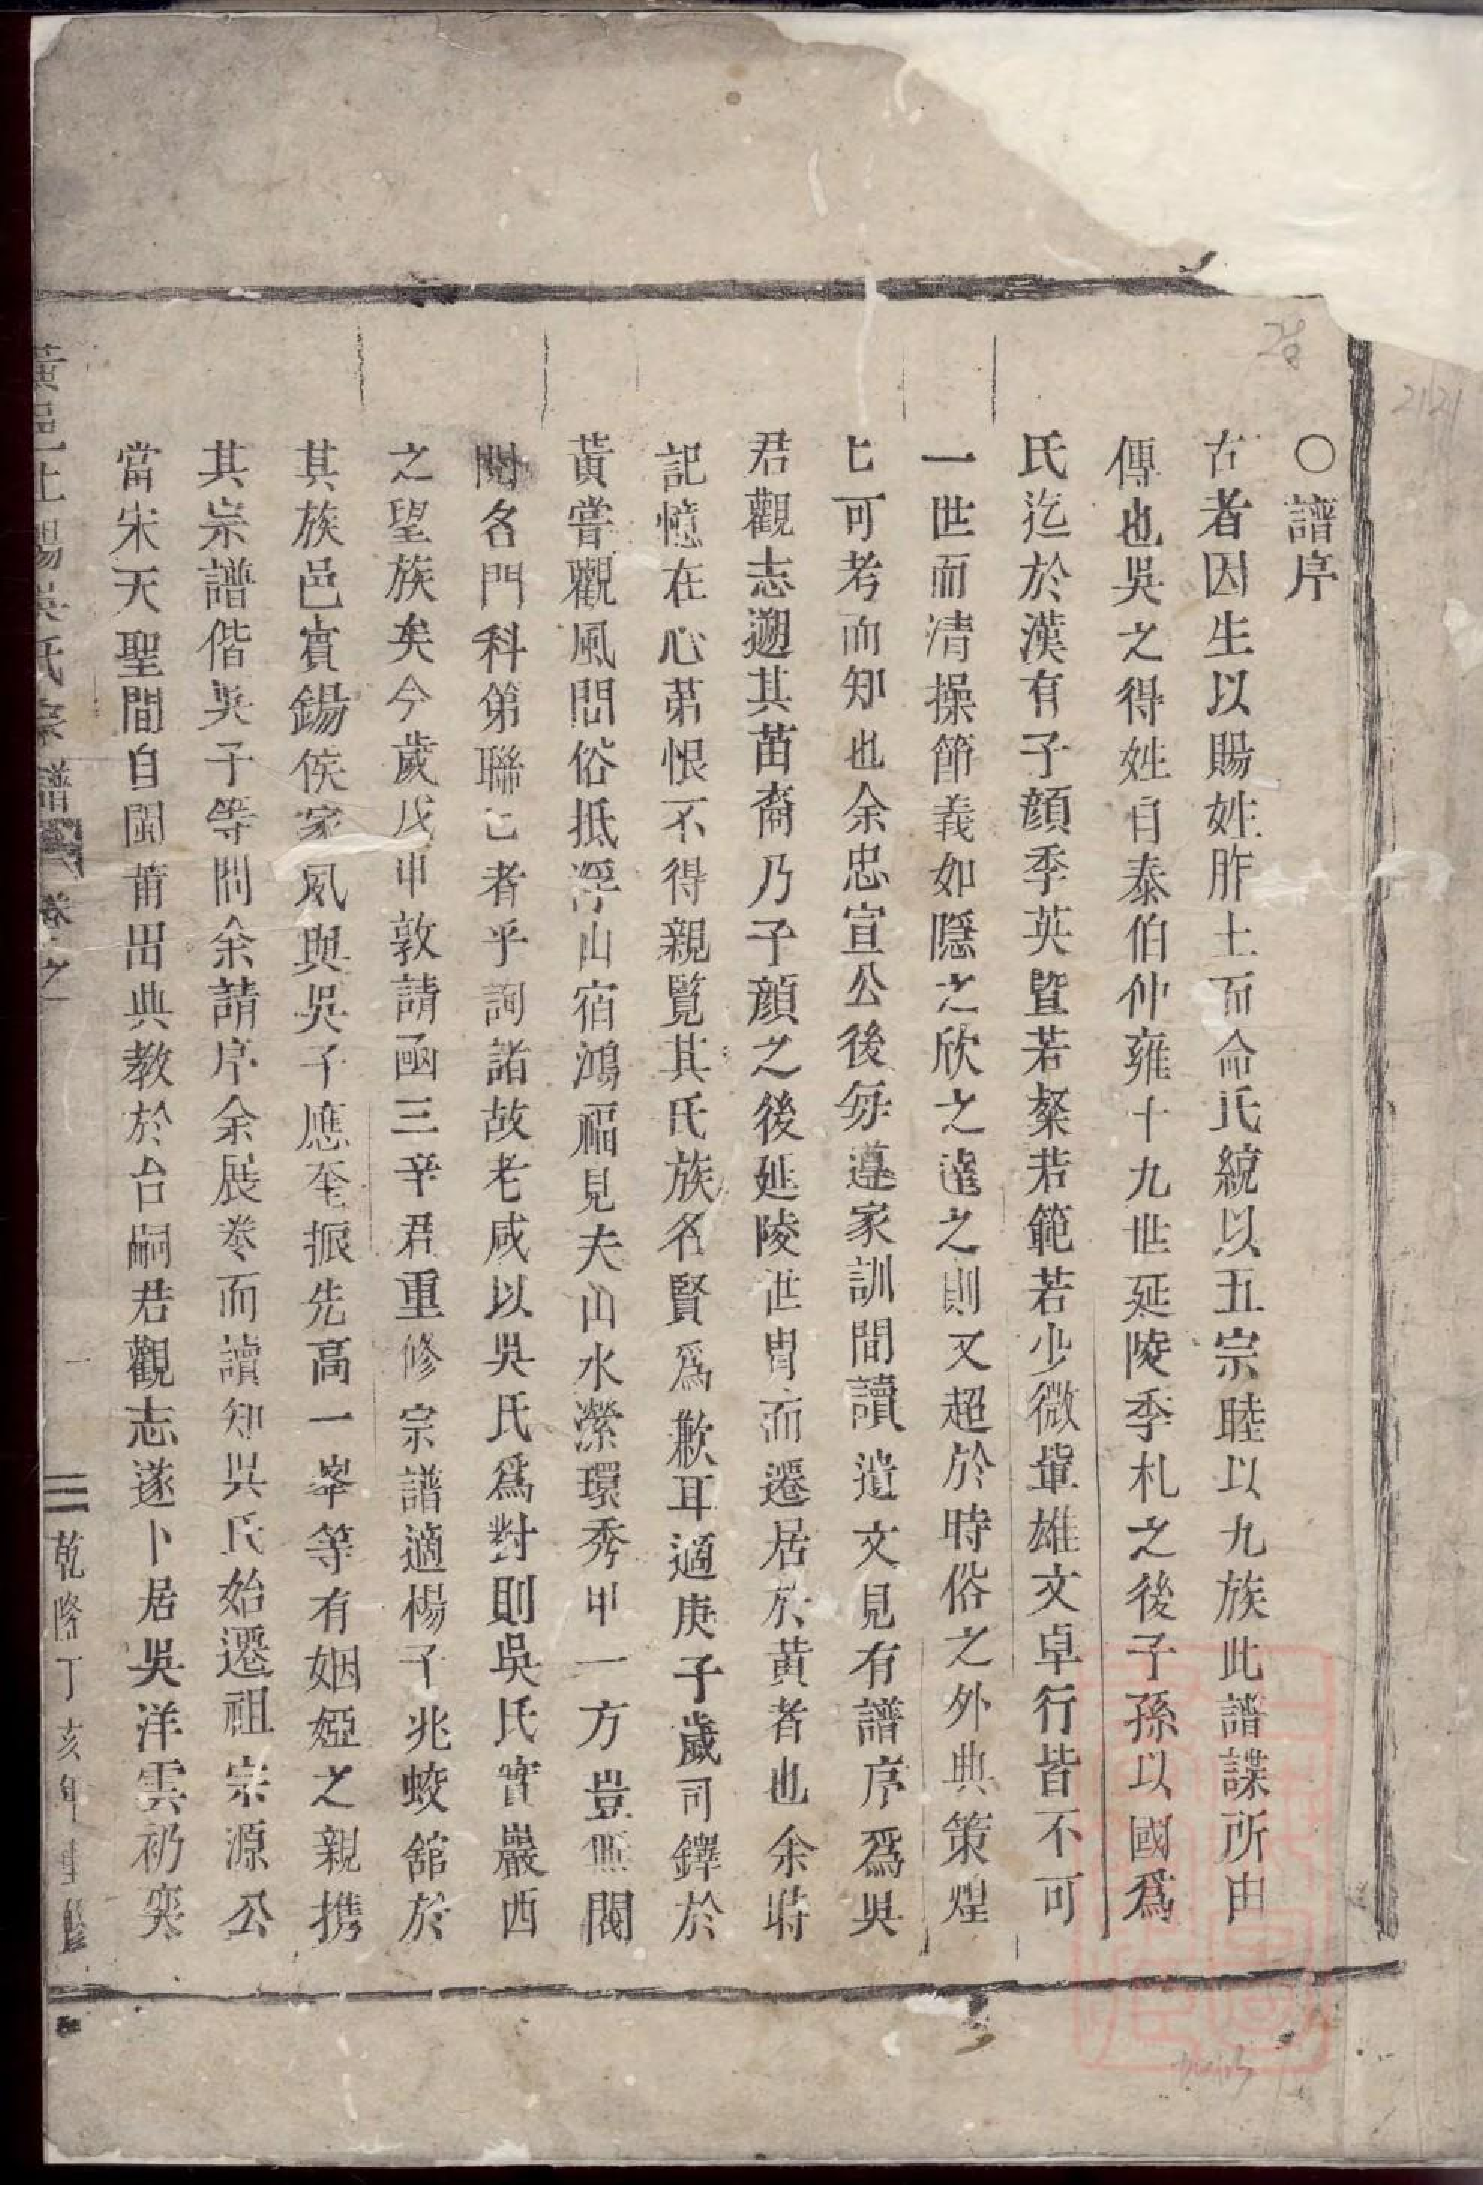 ○譜序
古者因生以賜姓胙土而命氏統以五宗睦以九族此譜諜所由
傳也吳之得姓自泰伯仲雍十九世延陵季札之後子孫以國爲
氏迄於漢有子顔季英暨若粲若範若少微輩雄文卓行皆不可
一世而清操節義如隱之欣之逵之則又超於時俗之外典策煌
上可考而知也余忠宣公後毎遵家訓間讀遺文見有譜序爲吳
君觀志遡其苗裔乃子顔之後延陵世胄而遷居於黃者也余時
記憶在心第恨不得親覽其氏族名賢爲歉耳適庚子歲司鐸於
黃嘗觀風問俗抵浮山宿鴻福見夫山水瀠環秀甲一方豈無閥
閱名門科第聯巳者乎詢諸故老咸以吳氏爲對則吳氏實巖西
之望族矣今歲戊申敦請函三辛君重修宗譜適楊子兆蛟舘於
其族邑賓錫侯家夙與吳子應奎振先高一峯等有姻婭之親携
其宗譜偕吳子等問余請序余展卷而讀知吳氏始遷祖宗源公
當宋天聖間自閩莆出典教於台嗣君觀志遂卜居吳洋雲礽奕
黃邑上賜吳氏宗譜 卷之 一 乾隆丁亥年重修